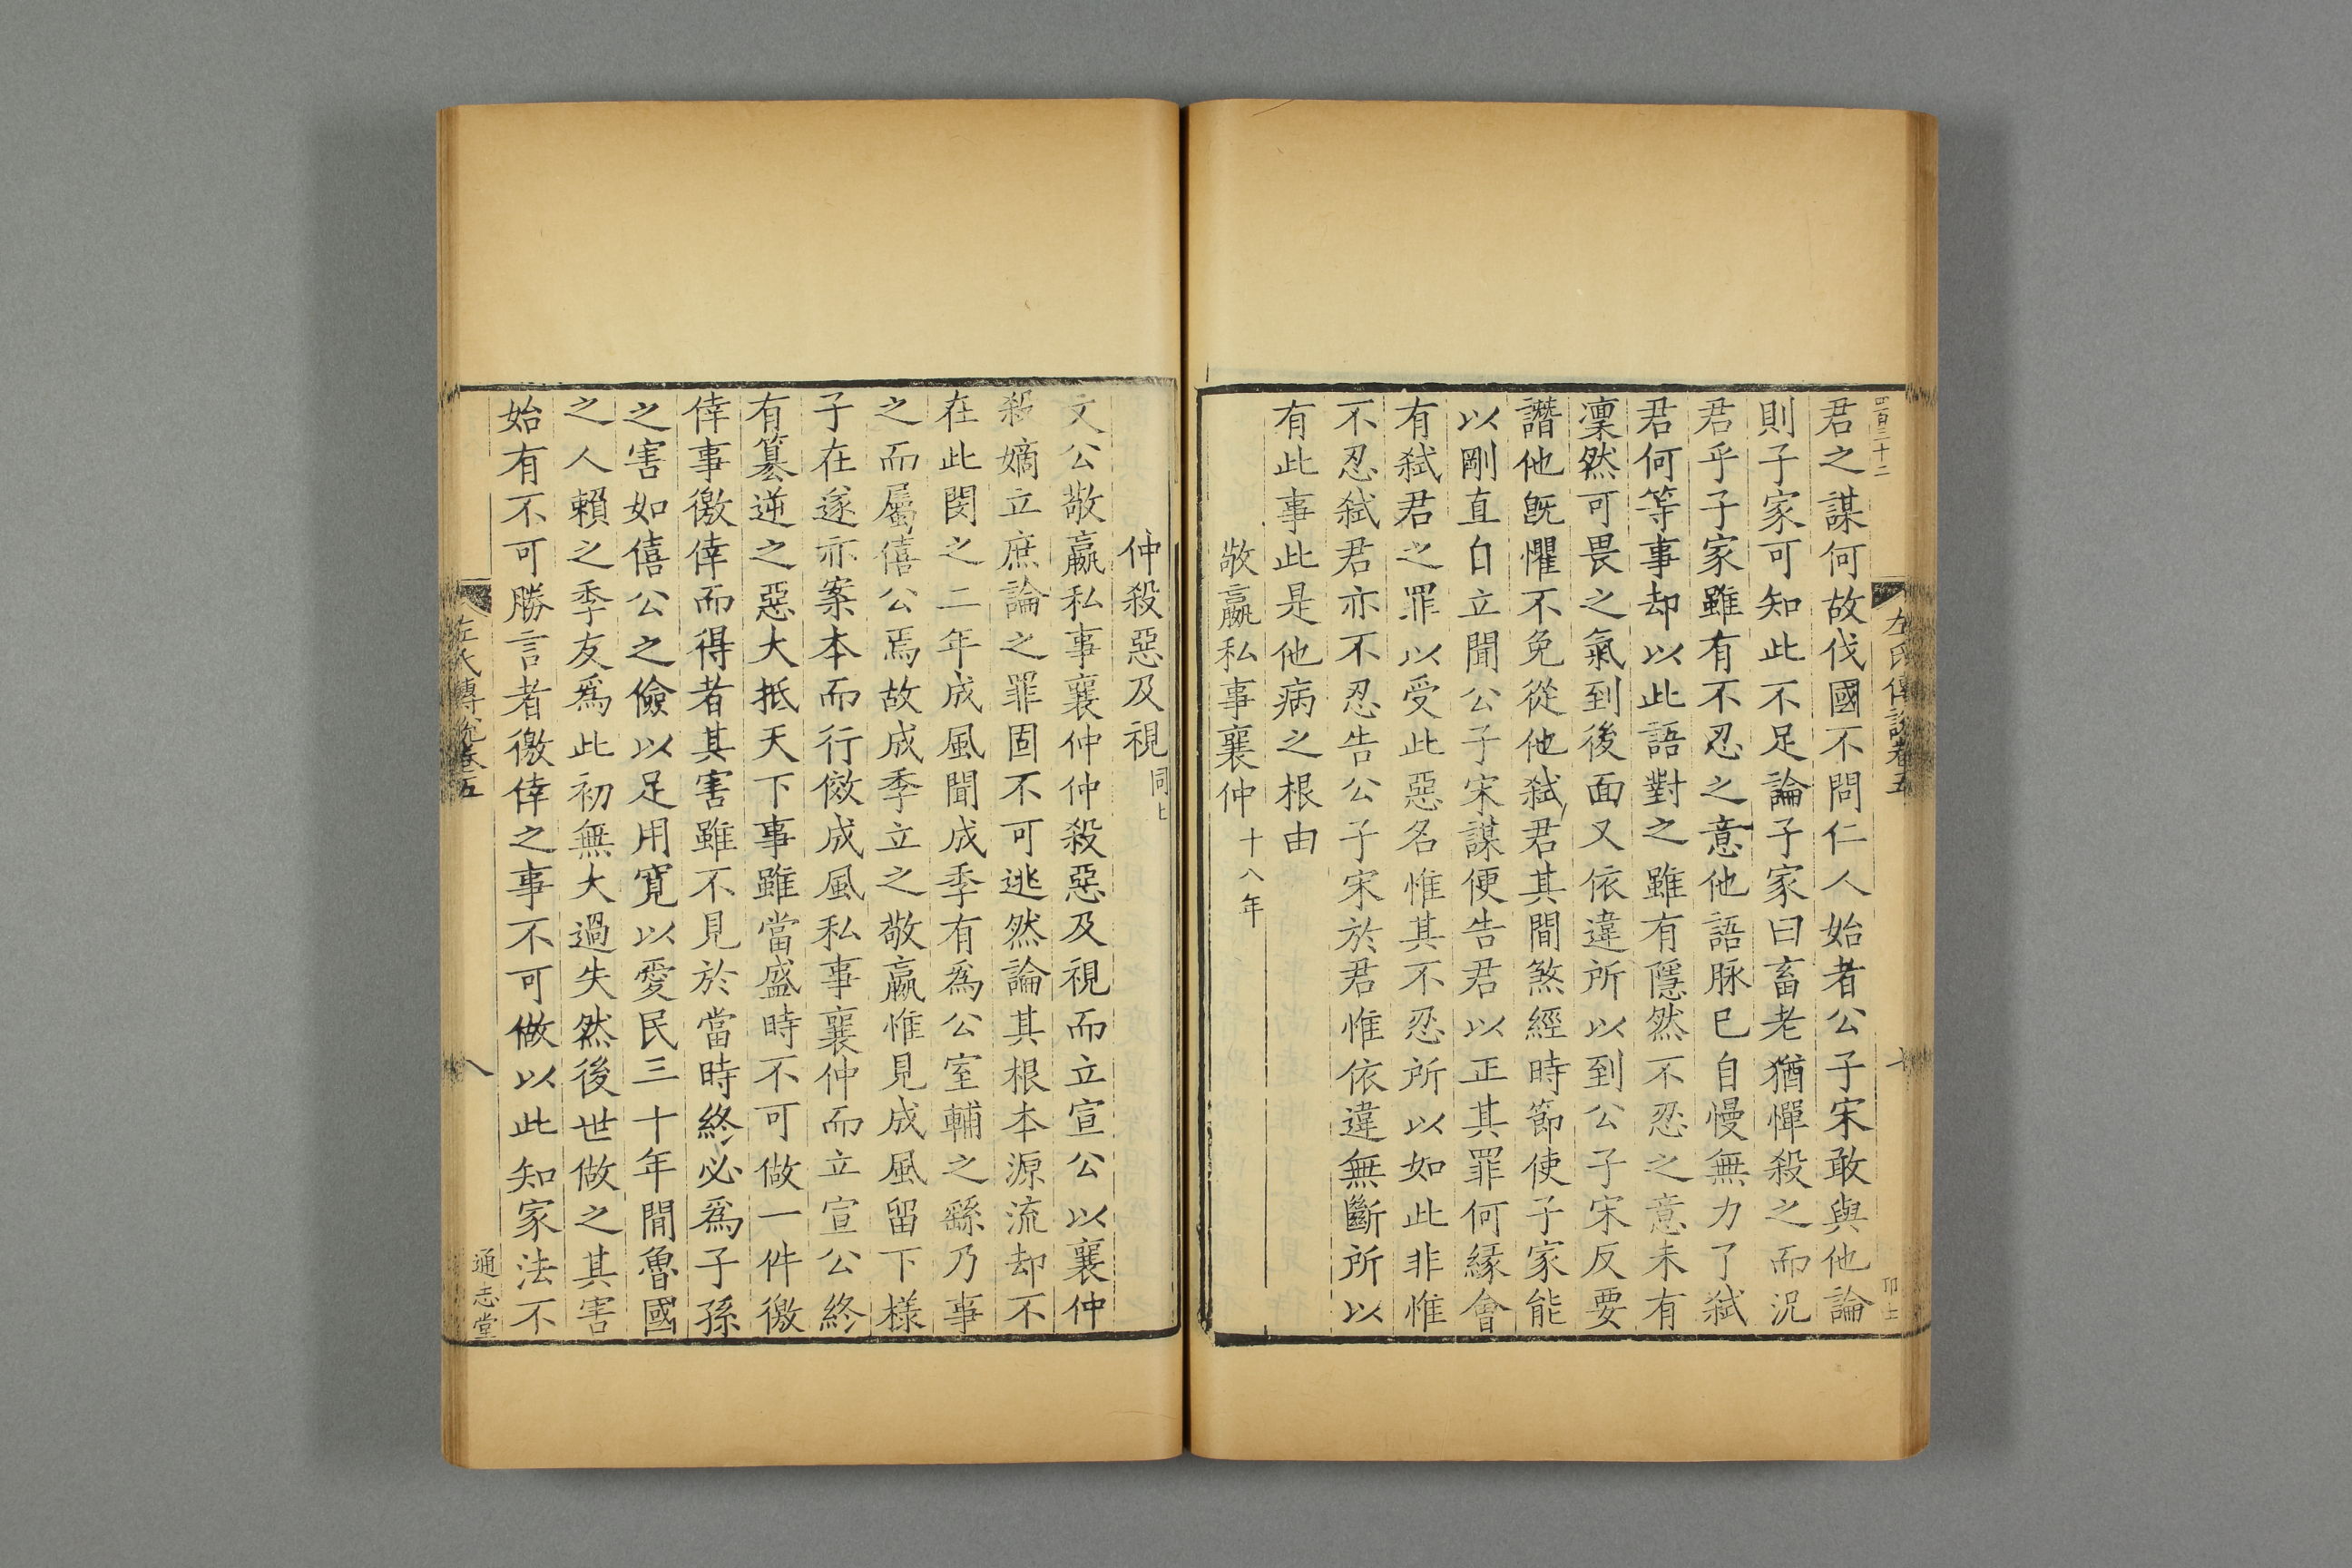 四百三十二
左氏傳說卷五
君之謀何故伐國不問仁人始者公子宋敢與他論
則子家可知此不足論子家曰畜老猶憚殺之而況
君乎子家雖有不忍之意他語脉已自慢無力了弑
君何等事却以此語對之雖有隱然不忍之意未有
凜然可畏之氣到後面又依違所以到公子宋反要
譖他旣懼不免從他弑君其間煞經時節使子家能
以剛直自立聞公子宋謀便告君以正其罪何緣會
有弑君之罪以受此惡名惟其不忍所以如此非惟
不忍弑君亦不忍告公子宋於君惟依違無斷所以
有此事此是他病之根由
敬嬴私事襄仲十八年
仲殺惡及視同上
文公敬嬴私事襄仲仲殺惡及視而立宣公以襄仲
殺嫡立庶論之罪固不可逃然論其根本源流却不
在此閔之二年成風聞成季有爲公室輔之繇乃事
之而屬僖公焉故成季立之敬嬴惟見成風留下樣
子在遂亦案本而行傚成風私事襄仲而立宣公終
有簒逆之惡大抵天下事雖當盛時不可做一件徼
倖事徼倖而得者其害雖不見於當時終必爲子孫
之害如僖公之儉以足用寬以愛民三十年間魯國
之人賴之季友爲此初無大過失然後世做之其害
始有不可勝言者徼倖之事不可做以此知家法不
左氏傳說卷五
八
通志堂